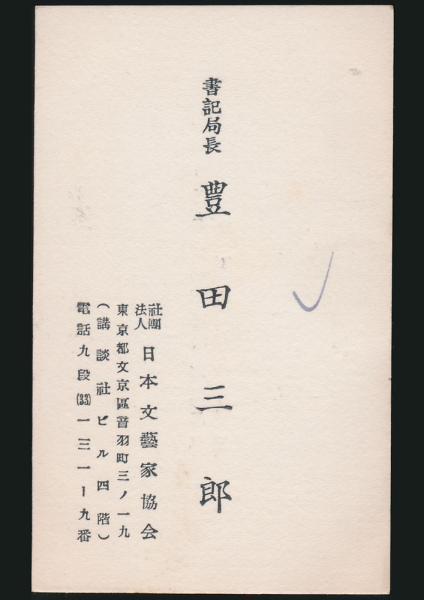 書記局長 豊田三郎
社團法人 日本文藝家協会
東京都文京區音羽町三ノ一九
(講談社ビル四階)
電話九段(33)一三一ー九番